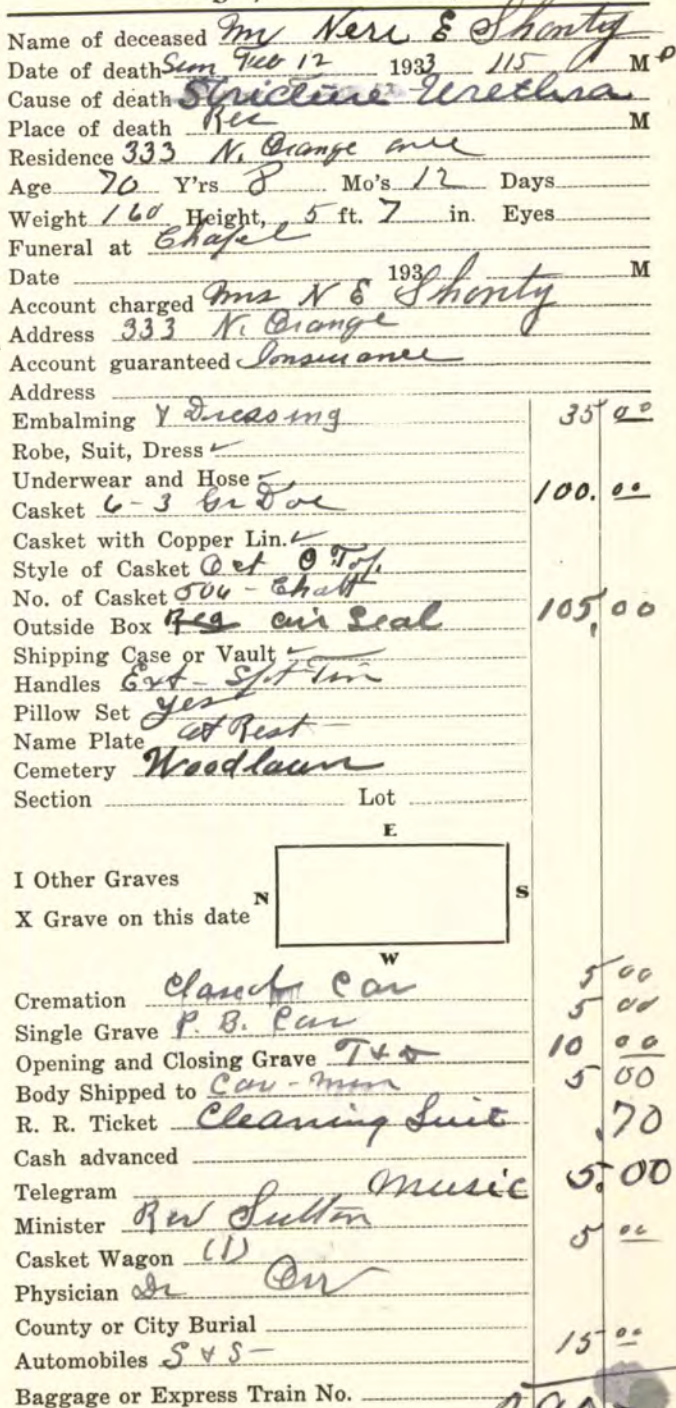 Name of deceased Mr Neri E Shonty
Date of death Sun Feb 12 1933 115 P M
Cause of death Stricture Urethra
Place of death Res M
Residence 333 N. Orange ave
Age 70 Y'rs 8 Mo's 12 Days
Weight 160 Height, 5 ft. 7 in. Eyes
Funeral at Chapel
Date 193 M
Account charged Mrs N E Shonty
Address 333 N. Orange
Account guaranteed Insurance
Address
Embalming & Dressing 35 00
Robe, Suit, Dress
Underwear and Hose
Casket 6-3 Gr Doe 100.00
Casket with Copper Lin.
Style of Casket Oct O Top
No. of Casket - Chatt
Outside Box Reg air Seal 105,00
Shipping Case or Vault
Handles Ext -
Pillow Set yes
Name Plate at Rest
Cemetery Woodlawn
Section Lot
E
I Other Graves
N S
X Grave on this date
W
Cremation Closed Car 5 00
Single Grave P. B. Car 5 00
Opening and Closing Grave 10 00
Body Shipped to Car - min 5 00
R. R. Ticket Cleaning Suit .70
Cash advanced
Telegram Music 5.00
Minister Rev Sutton
Casket Wagon (1) 5 00
Physician Dr Orr
County or City Burial
Automobiles S & S - 15 00
Baggage or Express Train No.